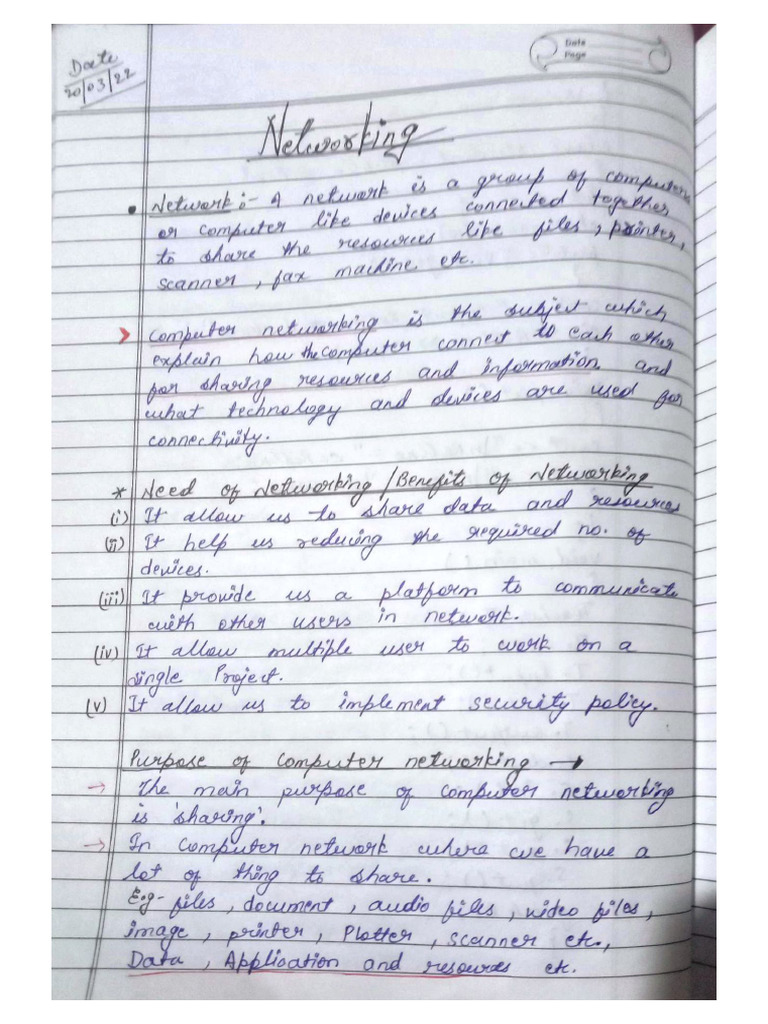 Date
20/03/22
Date
Page
Networking
• Network :- A network is a group of computers
or computer like devices connected together
to share the resources like files, printer,
scanner, fax machine etc.
> Computer networking is the subject which
explain how the computer connect to each other
for sharing resources and information and
what technology and devices are used for
connectivity.
* Need of Networking / Benefits of Networking
(i) It allow us to share data and resources
(ii) It help us reducing the required no. of
devices.
(iii) It provide us a platform to communicate
with other users in network.
(iv) It allow multiple user to work on a
single Project.
(v) It allow us to implement security policy.
Purpose of computer networking →
→ The main purpose of computer networking
is 'sharing'.
→ In computer network where we have a
lot of thing to share.
E.g- files, document, audio files, video files,
image, printer, Plotter, scanner etc.,
Data, Application and resources etc.